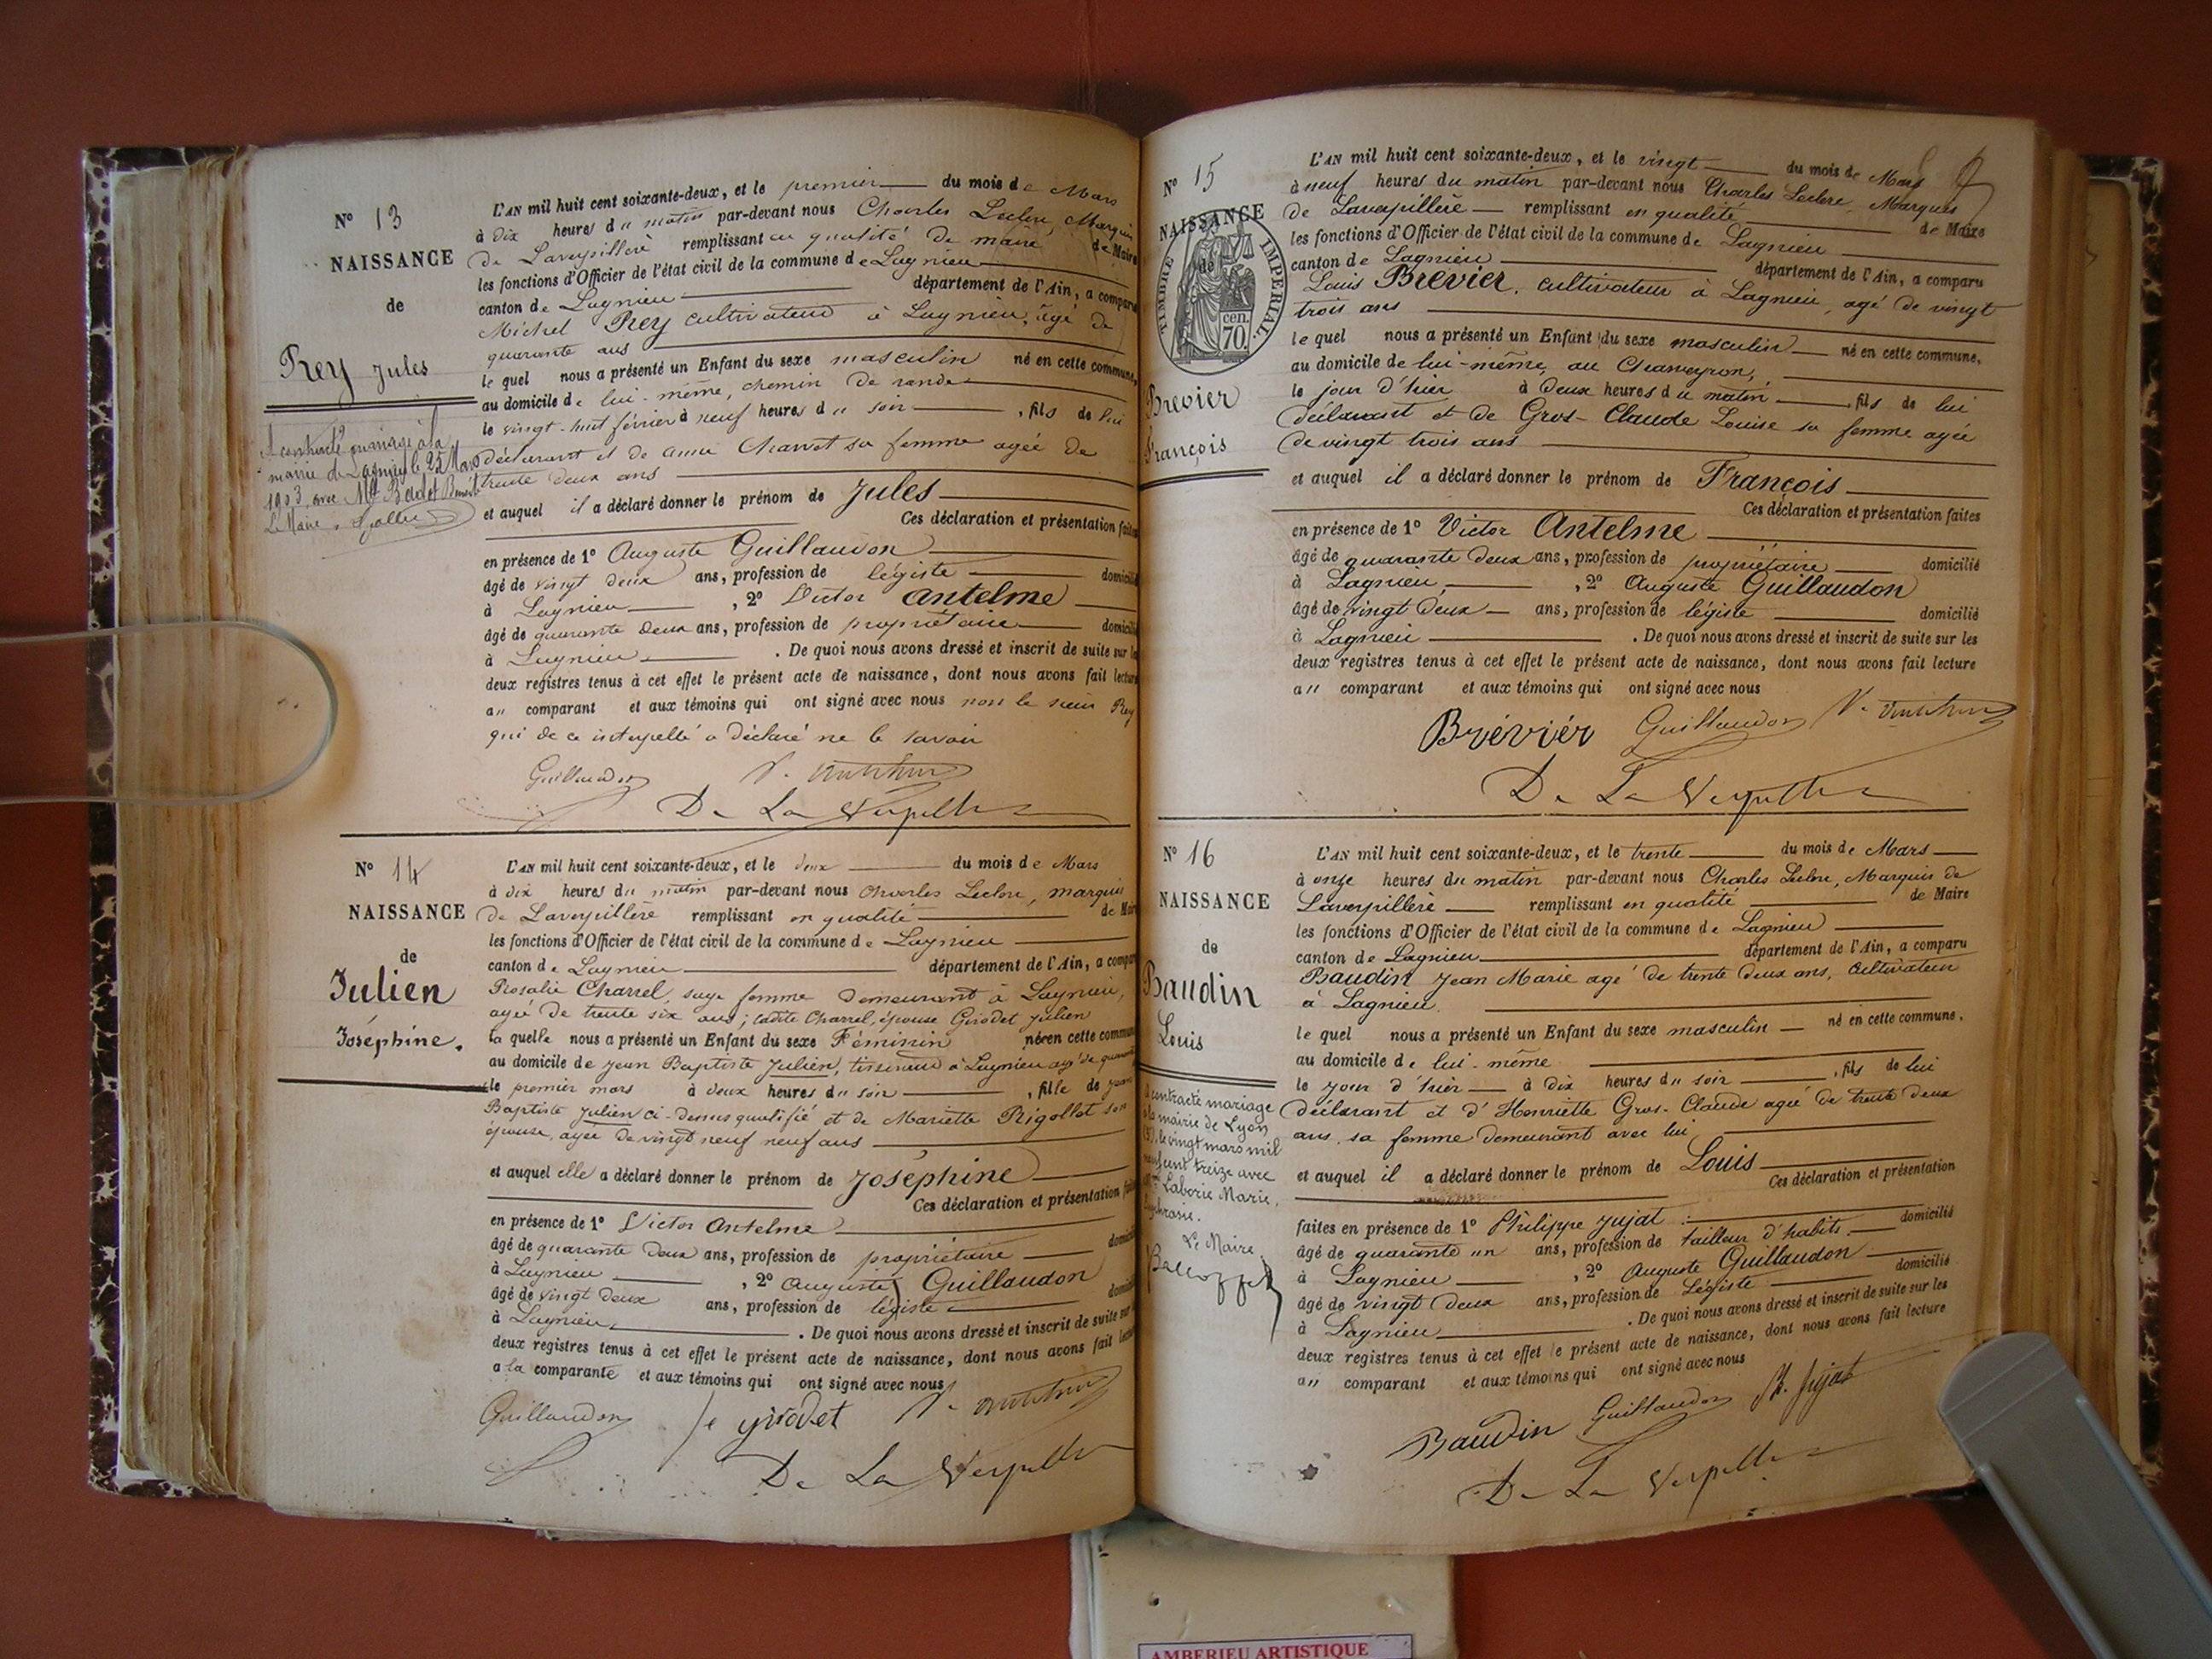 N° 13
NAISSANCE
de
Rey Jules
A contracté mariage à la
mairie de Lagnieu le 25 Mars
1903 avec Mlle
Le Maire
L'AN mil huit cent soixante-deux, et le premier du mois de Mars
à dix heures du matin par-devant nous Charles Leclerc, Marquis
de Laverpillère remplissant en qualité de maire de Maire
les fonctions d'Officier de l'état civil de la commune de Lagnieu
canton de Lagnieu département de l'Ain, a comparu
Michel Rey cultivateur à Lagnieu, âgé de
quarante ans
le quel nous a présenté un Enfant du sexe masculin né en cette commune,
au domicile de lui-même, chemin de rande
le vingt-huit février à neuf heures du soir, fils de lui
déclarant et de anne Charvet sa femme agée de
trente deux ans
et auquel il a déclaré donner le prénom de Jules
Ces déclaration et présentation faites
en présence de 1° Auguste Guillaudon
âgé de vingt deux ans, profession de légiste domicilié
à Lagnieu, 2° Victor Antelme
âgé de quarante deux ans, profession de propriétaire domicilié
à Lagnieu. De quoi nous avons dressé et inscrit de suite sur les
deux registres tenus à cet effet le présent acte de naissance, dont nous avons fait lecture
au comparant et aux témoins qui ont signé avec nous non le sieur Rey
qui de ce interpellé a déclaré ne le savoir
Guillaudon V. Antelme
De La Verpillere
N° 14
NAISSANCE
de
Julien
Joséphine.
L'AN mil huit cent soixante-deux, et le deux du mois de Mars
à dix heures du matin par-devant nous Charles Leclerc, marquis
de Laverpillère remplissant en qualité de Maire
les fonctions d'Officier de l'état civil de la commune de Lagnieu
canton de Lagnieu département de l'Ain, a comparu
Rosalie Charrel, sage femme demeurant à Lagnieu,
agée de trente six ans; ladite Charrel, épouse Girodet Julien
la quelle nous a présenté un Enfant du sexe Féminin née en cette commune
au domicile de Jean Baptiste Julien, tisserand à Lagnieu agé de quarante
le premier mars à deux heures du soir, fille de Jean
Baptiste Julien ci-dessus qualifié et de Mariette Rigollet son
épouse, agée de vingt neuf neuf ans
et auquel elle a déclaré donner le prénom de Joséphine
Ces déclaration et présentation faites
en présence de 1° Victor Antelme
âgé de quarante deux ans, profession de propriétaire domicilié
à Lagnieu, 2° Auguste Guillaudon
âgé de vingt deux ans, profession de légiste domicilié
à Lagnieu. De quoi nous avons dressé et inscrit de suite sur
deux registres tenus à cet effet le présent acte de naissance, dont nous avons fait lecture
a la comparante et aux témoins qui ont signé avec nous
Guillaudon fe girodet V. Antelme
De La Verpillere
N° 15
NAISSANCE
de
TIMBRE IMPERIAL.
70 cen.
Brevier
François
L'AN mil huit cent soixante-deux, et le vingt du mois de Mars
à neuf heures du matin par-devant nous Charles Leclerc, Marquis
de Laverpillère remplissant en qualité de Maire
les fonctions d'Officier de l'état civil de la commune de Lagnieu
canton de Lagnieu département de l'Ain, a comparu
Louis Brevier, cultivateur à Lagnieu, agé de vingt
trois ans
le quel nous a présenté un Enfant du sexe masculin né en cette commune,
au domicile de lui-même, au Charveyron,
le jour d'hier à deux heures du matin, fils de lui
déclarant et de Gros-Claude Louise sa femme agée
de vingt trois ans
et auquel il a déclaré donner le prénom de François
Ces déclaration et présentation faites
en présence de 1° Victor Antelme
âgé de quarante deux ans, profession de propriétaire domicilié
à Lagnieu, 2° Auguste Guillaudon
âgé de vingt deux ans, profession de légiste domicilié
à Lagnieu. De quoi nous avons dressé et inscrit de suite sur les
deux registres tenus à cet effet le présent acte de naissance, dont nous avons fait lecture
au comparant et aux témoins qui ont signé avec nous
Bréviér Guillaudon V. Antelme
De La Verpillere
N° 16
NAISSANCE
de
Baudin
Louis
A contracté mariage
à la mairie de Lyon
le vingt mars mil
neuf cent treize avec
Laborie Marie,
Le Maire
L'AN mil huit cent soixante-deux, et le trente du mois de Mars
à onze heures du matin par-devant nous Charles Leclerc, Marquis de
Laverpillère remplissant en qualité de Maire
les fonctions d'Officier de l'état civil de la commune de Lagnieu
canton de Lagnieu département de l'Ain, a comparu
Baudin Jean Marie agé de trente deux ans, Cultivateur
à Lagnieu.
le quel nous a présenté un Enfant du sexe masculin né en cette commune.
au domicile de lui-même
le jour d'hier à dix heures du soir, fils de lui
déclarant et d'Henriette Gros-Claude agée de trente deux
ans, sa femme demeurant avec lui
et auquel il a déclaré donner le prénom de Louis
Ces déclaration et présentation
faites en présence de 1° Philippe Jujat
âgé de quarante un ans, profession de tailleur d'habits domicilié
à Lagnieu, 2° Auguste Guillaudon
âgé de vingt deux ans, profession de Légiste domicilié
à Lagnieu. De quoi nous avons dressé et inscrit de suite sur les
deux registres tenus à cet effet le présent acte de naissance, dont nous avons fait lecture
au comparant et aux témoins qui ont signé avec nous
Baudin Guillaudon Ph. Jujat
De La Verpillere
AMBERIEU ARTISTIQUE